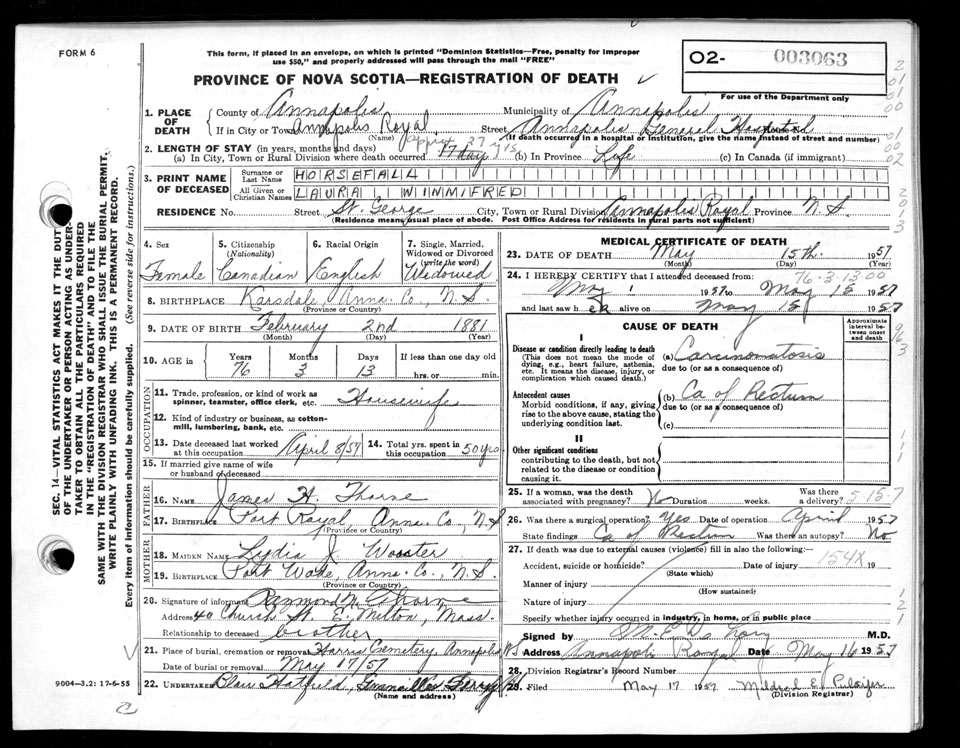 FORM 6
This form, if placed in an envelope, on which is printed "Dominion Statistics—Free, penalty for improper
use $50," and properly addressed will pass through the mail "FREE"
PROVINCE OF NOVA SCOTIA—REGISTRATION OF DEATH
O2- 003063
For use of the Department only
1. PLACE OF DEATH
County of Annapolis Municipality of Annapolis
If in City or Town Annapolis Royal Street Annapolis General Hospital
(Name) (If death occurred in a hospital or institution, give the name instead of street and number)
2. LENGTH OF STAY (in years, months and days)
(a) In City, Town or Rural Division where death occurred 17 days (b) In Province Life (c) In Canada (if immigrant)
3. PRINT NAME OF DECEASED
Surname or Last Name HORSEFALL
All Given or Christian Names LAURA WINNIFRED
RESIDENCE No. Street St. George City, Town or Rural Division Annapolis Royal Province N.S.
(Residence means usual place of abode. Post Office Address for residents in rural parts not sufficient)
4. Sex 5. Citizenship (Nationality) 6. Racial Origin 7. Single, Married, Widowed or Divorced (write the word)
Female Canadian English Widowed
8. BIRTHPLACE Karsdale, Anna. Co., N.S.
(Province or Country)
9. DATE OF BIRTH February 2nd 1881
(Month) (Day) (Year)
10. AGE in Years Months Days If less than one day
76 3 13 hrs. or min.
OCCUPATION
11. Trade, profession, or kind of work as spinner, teamster, office clerk, etc. Housewife
12. Kind of industry or business, as cotton-mill, lumbering, bank, etc.
13. Date deceased last worked at this occupation April 8/57 14. Total yrs. spent in this occupation 50 yrs
15. If married give name of wife or husband of deceased
FATHER
16. NAME James H. Thorne
17. BIRTHPLACE Port Royal, Anna. Co., N.S
(Province or Country)
MOTHER
18. MAIDEN NAME Lydia J. Wooster
19. BIRTHPLACE Port Wade, Anna. Co., N.S.
(Province or Country)
20. Signature of informant Raymond N. Thorne
Address 40 Church St. E. Milton, Mass.
Relationship to deceased brother
21. Place of burial, cremation or removal Harris Cemetery, Annapolis NS
Date of burial or removal May 17/57
22. UNDERTAKER Blair Hatfield, Granville Ferry NS
(Name and address)
9004-3.2: 17-6-55
MEDICAL CERTIFICATE OF DEATH
23. DATE OF DEATH May 15th. 1957
(Month) (Day) (Year)
24. I HEREBY CERTIFY that I attended deceased from: 76-3-13.00
May 1 1957 to May 15 1957
and last saw her alive on May 15 1957
CAUSE OF DEATH
Approximate interval between onset and death
I
Disease or condition directly leading to death (a) Carcinomatosis
(This does not mean the mode of dying, e.g., heart failure, asthenia, etc. It means the disease, injury, or complication which caused death.) due to (or as a consequence of)
Antecedent causes (b) Ca of Rectum
Morbid conditions, if any, giving rise to the above cause, stating the underlying condition last. due to (or as a consequence of)
(c)
II
Other significant conditions
contributing to the death, but not related to the disease or condition causing it.
25. If a woman, was the death associated with pregnancy? No Duration weeks. Was there a delivery? 5 15-7
26. Was there a surgical operation? Yes Date of operation April 1957
State findings Ca of Rectum Was there an autopsy? No
27. If death was due to external causes (violence) fill in also the following:—
Accident, suicide or homicide? Date of injury 154X 19
(State which)
Manner of injury
(How sustained)
Nature of injury
Specify whether injury occurred in industry, in home, or in public place
Signed by M.D.
Address Annapolis Royal Date May 16 1957
28. Division Registrar's Record Number
29. Filed May 17 1957 Mildred E. Pulsifer
(Division Registrar)
SEC. 14—VITAL STATISTICS ACT MAKES IT THE DUTY
OF THE UNDERTAKER OR PERSON ACTING AS UNDER-
TAKER TO OBTAIN ALL THE PARTICULARS REQUIRED
IN THE "REGISTRATION OF DEATH" AND TO FILE THE
SAME WITH THE DIVISION REGISTRAR WHO SHALL ISSUE THE BURIAL PERMIT.
WRITE PLAINLY WITH UNFADING INK. THIS IS A PERMANENT RECORD.
Every item of information should be carefully supplied. (See reverse side for instructions.)